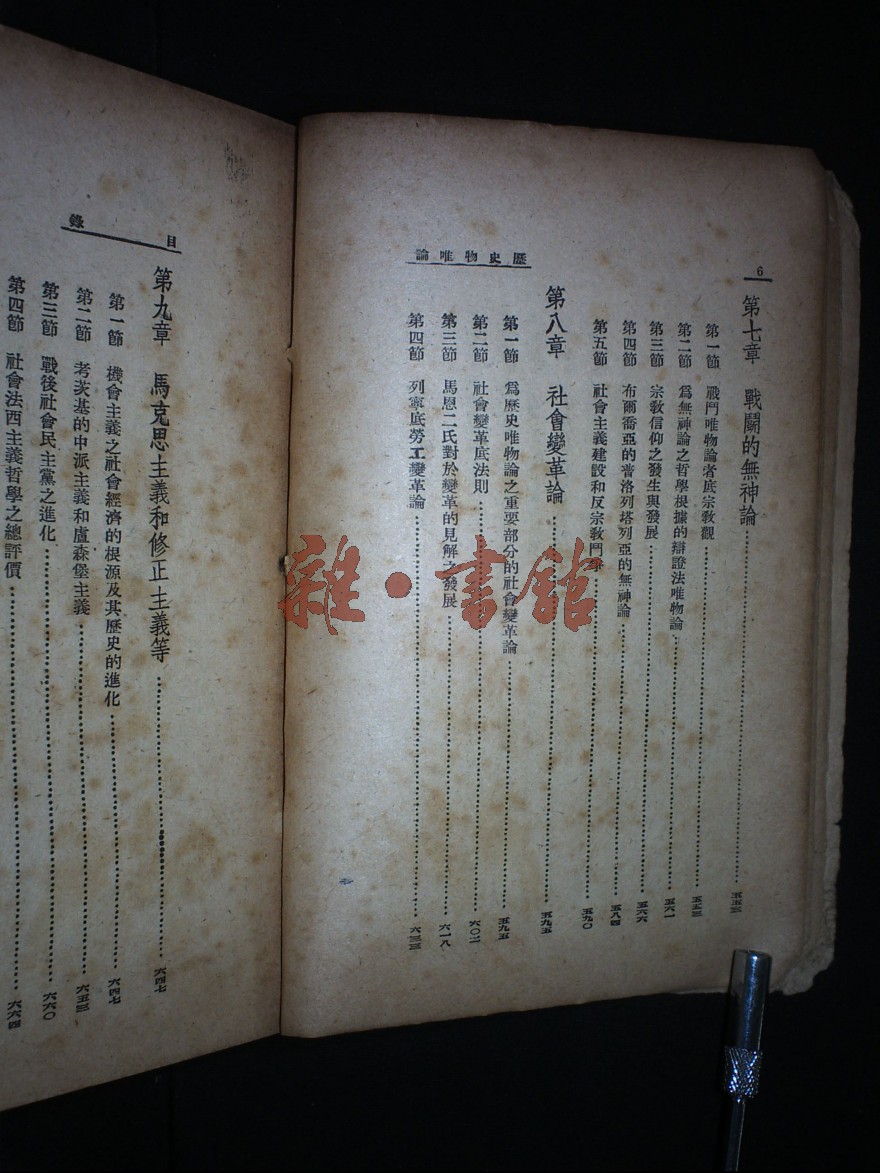 6
歷史物唯論
第七章 戰鬭的無神論 五五三
第一節 戰鬥唯物論者底宗敎觀 五五三
第二節 爲無神論之哲學根據的辯證法唯物論 五六一
第三節 宗敎信仰之發生與發展 五六六
第四節 布爾喬亞的普洛列塔列亞的無神論 五八四
第五節 社會主義建設和反宗敎鬥爭 五九〇
第八章 社會變革論 五九五
第一節 爲歷史唯物論之重要部分的社會變革論 五九五
第二節 社會變革底法則 六〇二
第三節 馬恩二氏對於變革的見解之發展 六一八
第四節 列寧底勞工變革論 六三三
目錄
第九章 馬克思主義和修正主義等 六四七
第一節 機會主義之社會經濟的根源及其歷史的進化 六四七
第二節 考茨基的中派主義和盧森堡主義 六五三
第三節 戰後社會民主黨之進化 六六〇
第四節 社會法西主義哲學之總評價 六六四
雜·書館